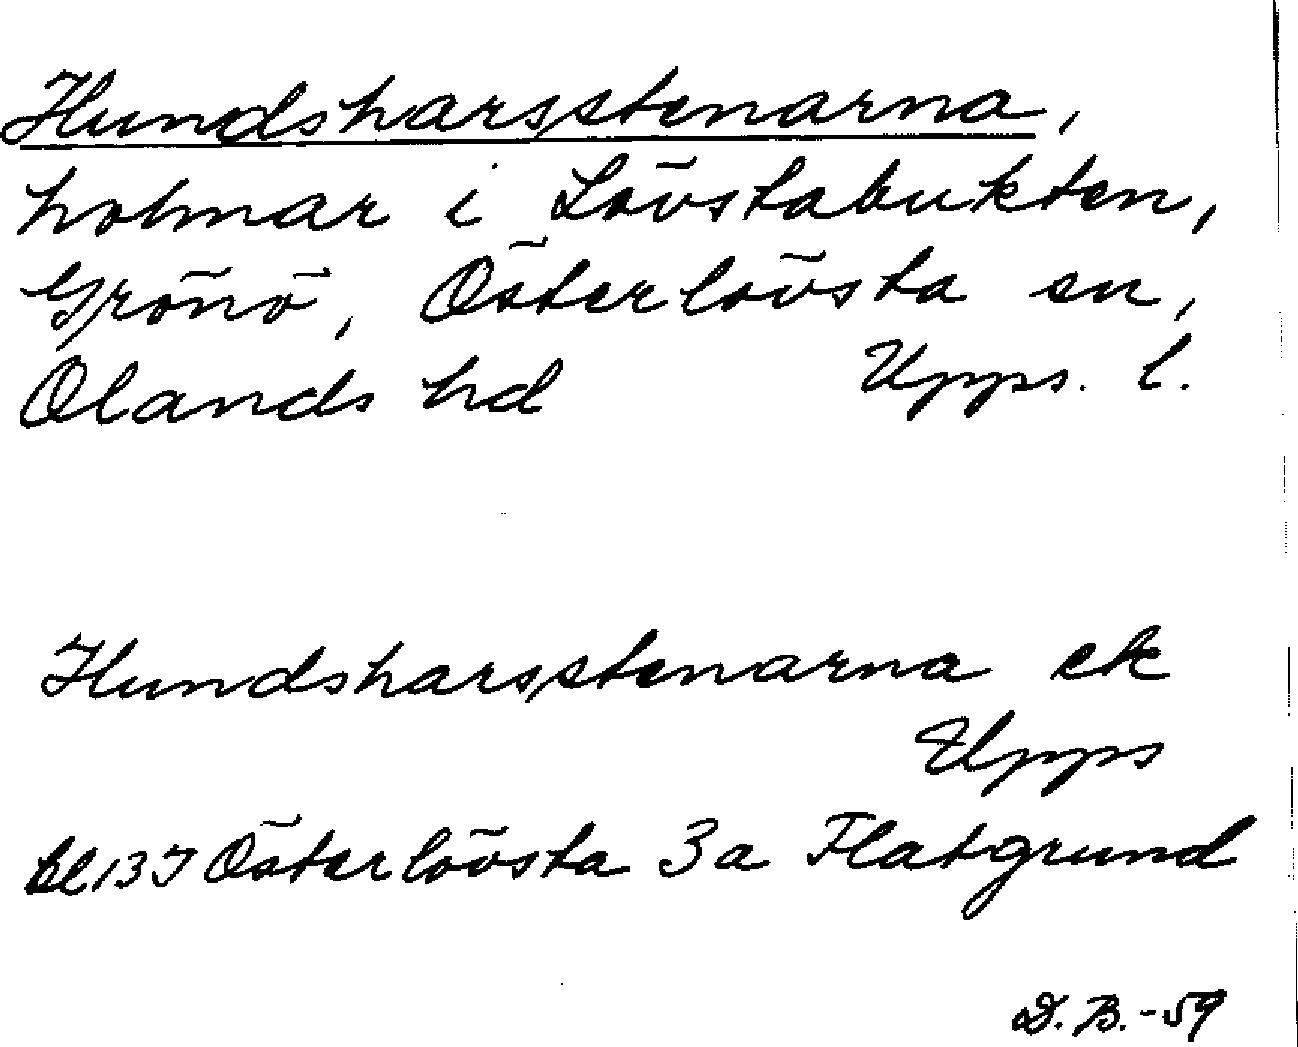 Hundsharsstenarna,
holmar i Lövstabukten,
Grönö, Österlövsta sn,
Olands hd Upps. l.
Hundsharsstenarna ek
Upps
bl 13 I Österlövsta 3a Flatgrund
D. B. -59